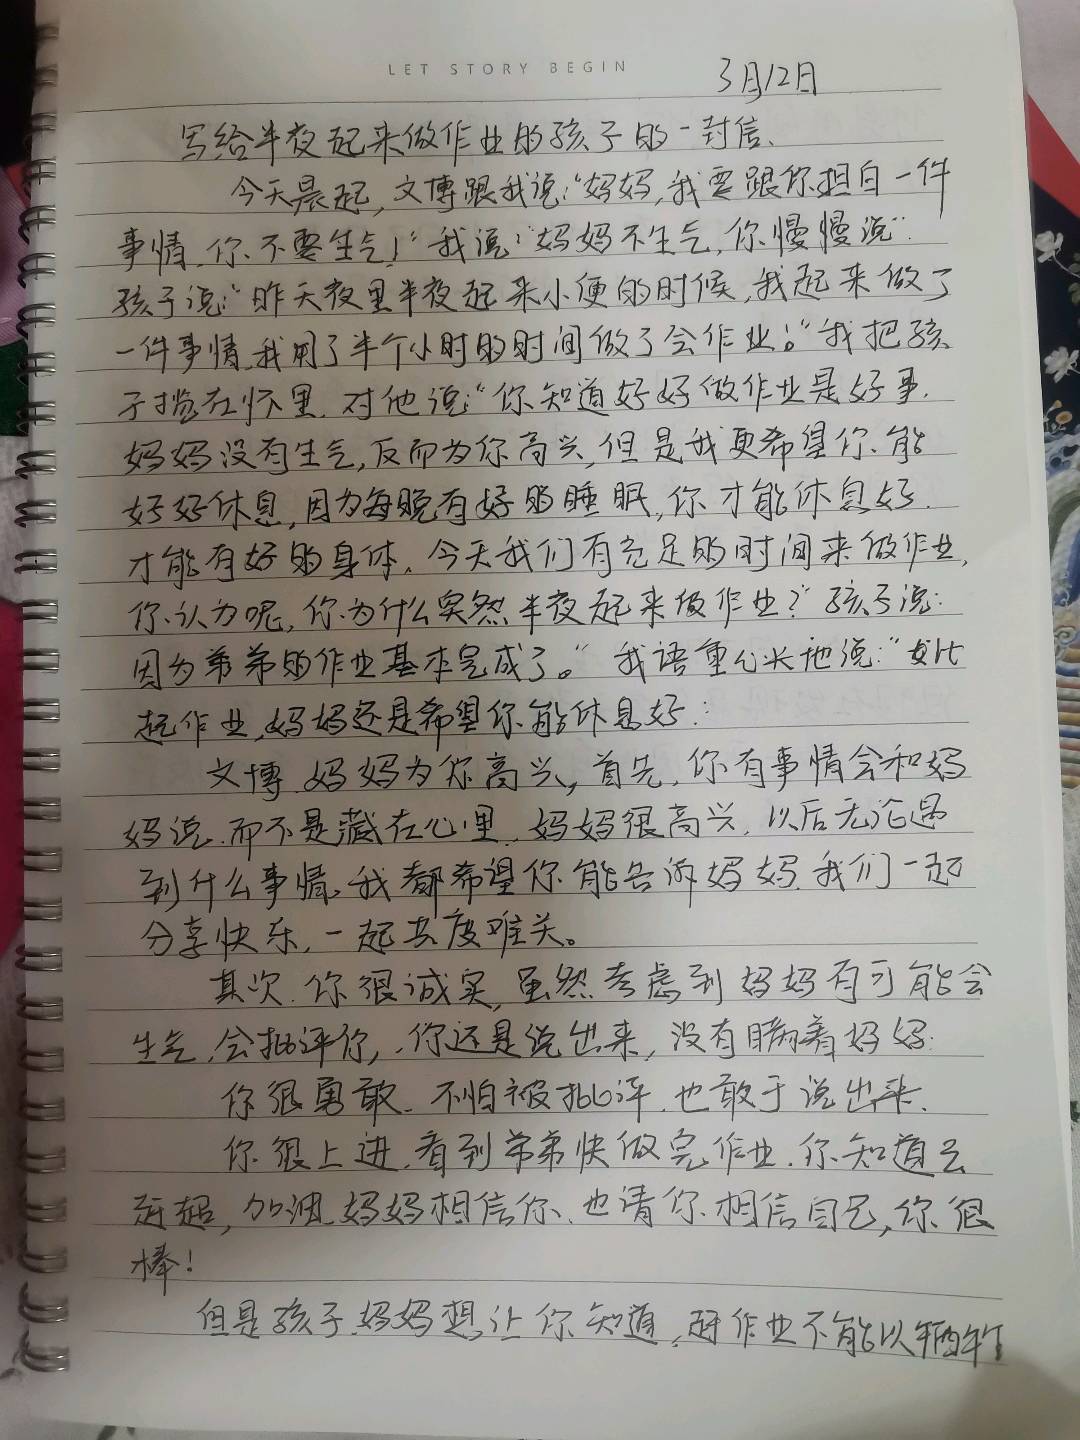 LET STORY BEGIN
3月12日
写给半夜起来做作业的孩子的一封信.
今天晨起,文博跟我说:"妈妈,我要跟你担白一件
事情,你不要生气!"我说:"妈妈不生气,你慢慢说".
孩子说:"昨天夜里半夜起来小便的时候,我起来做了
一件事情,我用了半个小时的时间做了会作业。"我把孩
子揽在怀里.对他说:"你知道好好做作业是好事.
妈妈没有生气,反而为你高兴,但是我更希望你能
好好休息,因为每晚有好的睡眠,你才能休息好.
才能有好的身体.今天我们有充足的时间来做作业,
你认为呢,你为什么突然半夜起来做作业?"孩子说:
因为弟弟的作业基本完成了。"我语重心长地说:"对比
起作业,妈妈还是希望你能休息好:
文博,妈妈为你高兴,首先,你有事情会和妈
妈说.而不是藏在心里.妈妈很高兴,以后无论遇
到什么事情,我都希望你能告诉妈妈.我们一起
分享快乐,一起共度难关。
其次.你很诚实,虽然考虑到妈妈有可能会
生气,会批评你,你还是说出来,没有瞒着妈妈.
你很勇敢.不怕被批评.也敢于说出来.
你很上进.看到弟弟快做完作业.你知道去
追赶,加油.妈妈相信你.也请你相信自己,你很
棒!
但是孩子.妈妈想让你知道,作业不能以牺牲